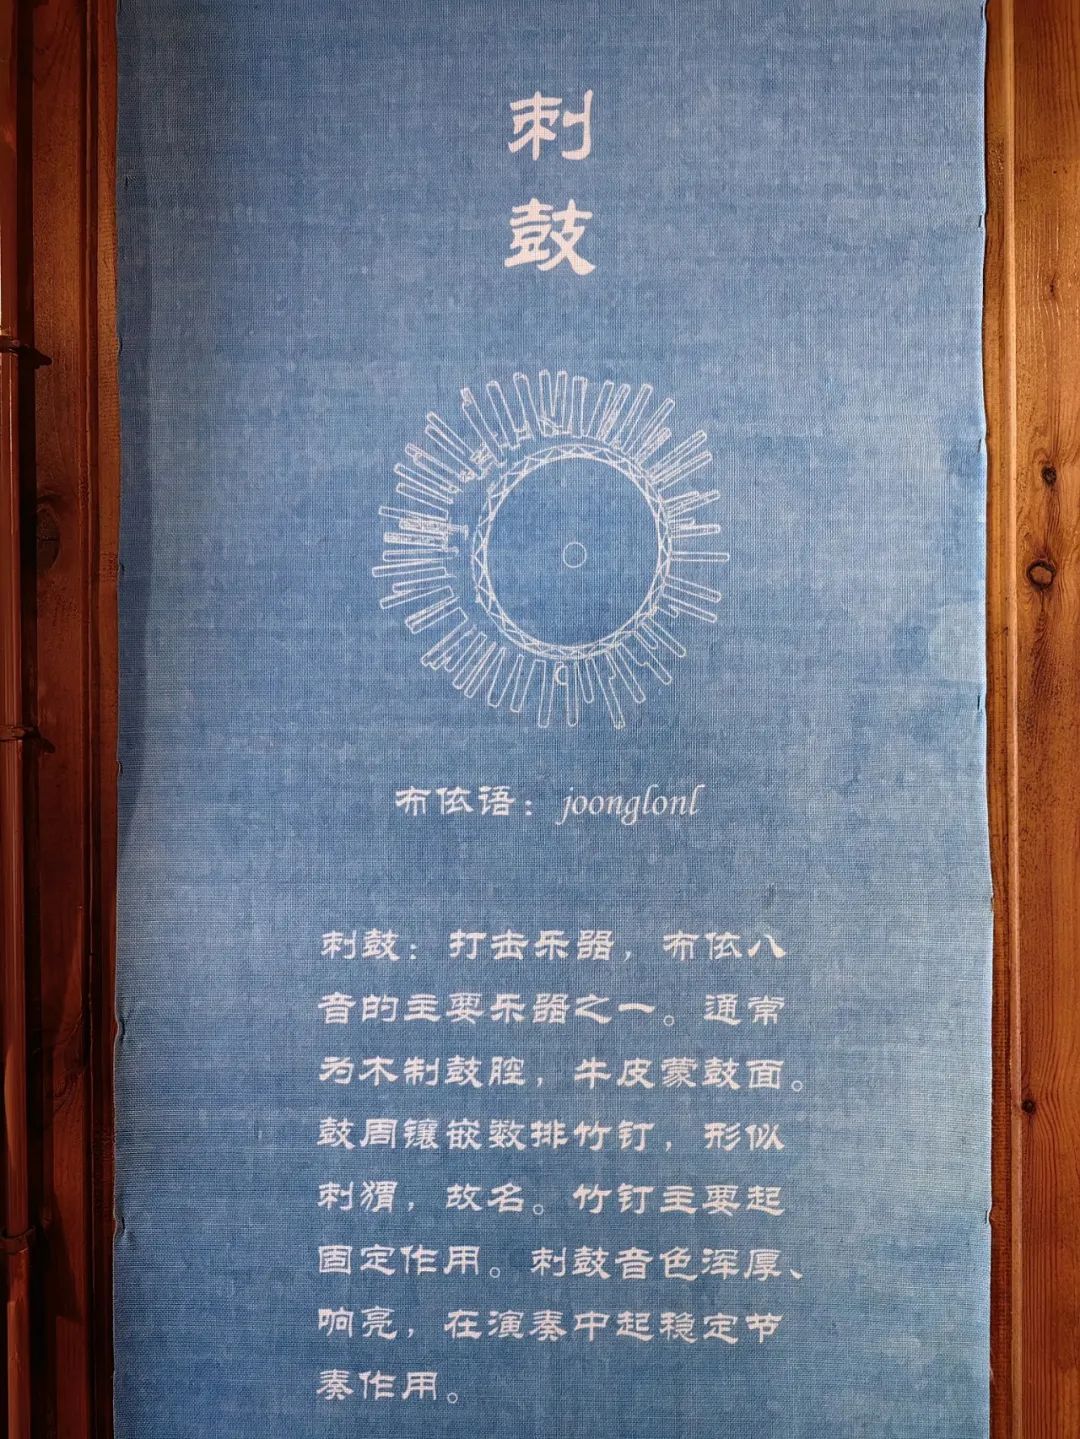 刺
鼓
布依语：joonglonl
刺鼓：打击乐器，布依八
音的主要乐器之一。通常
为木制鼓腔，牛皮蒙鼓面。
鼓周镶嵌数排竹钉，形似
刺猬，故名。竹钉主要起
固定作用。刺鼓音色浑厚、
响亮，在演奏中起稳定节
奏作用。